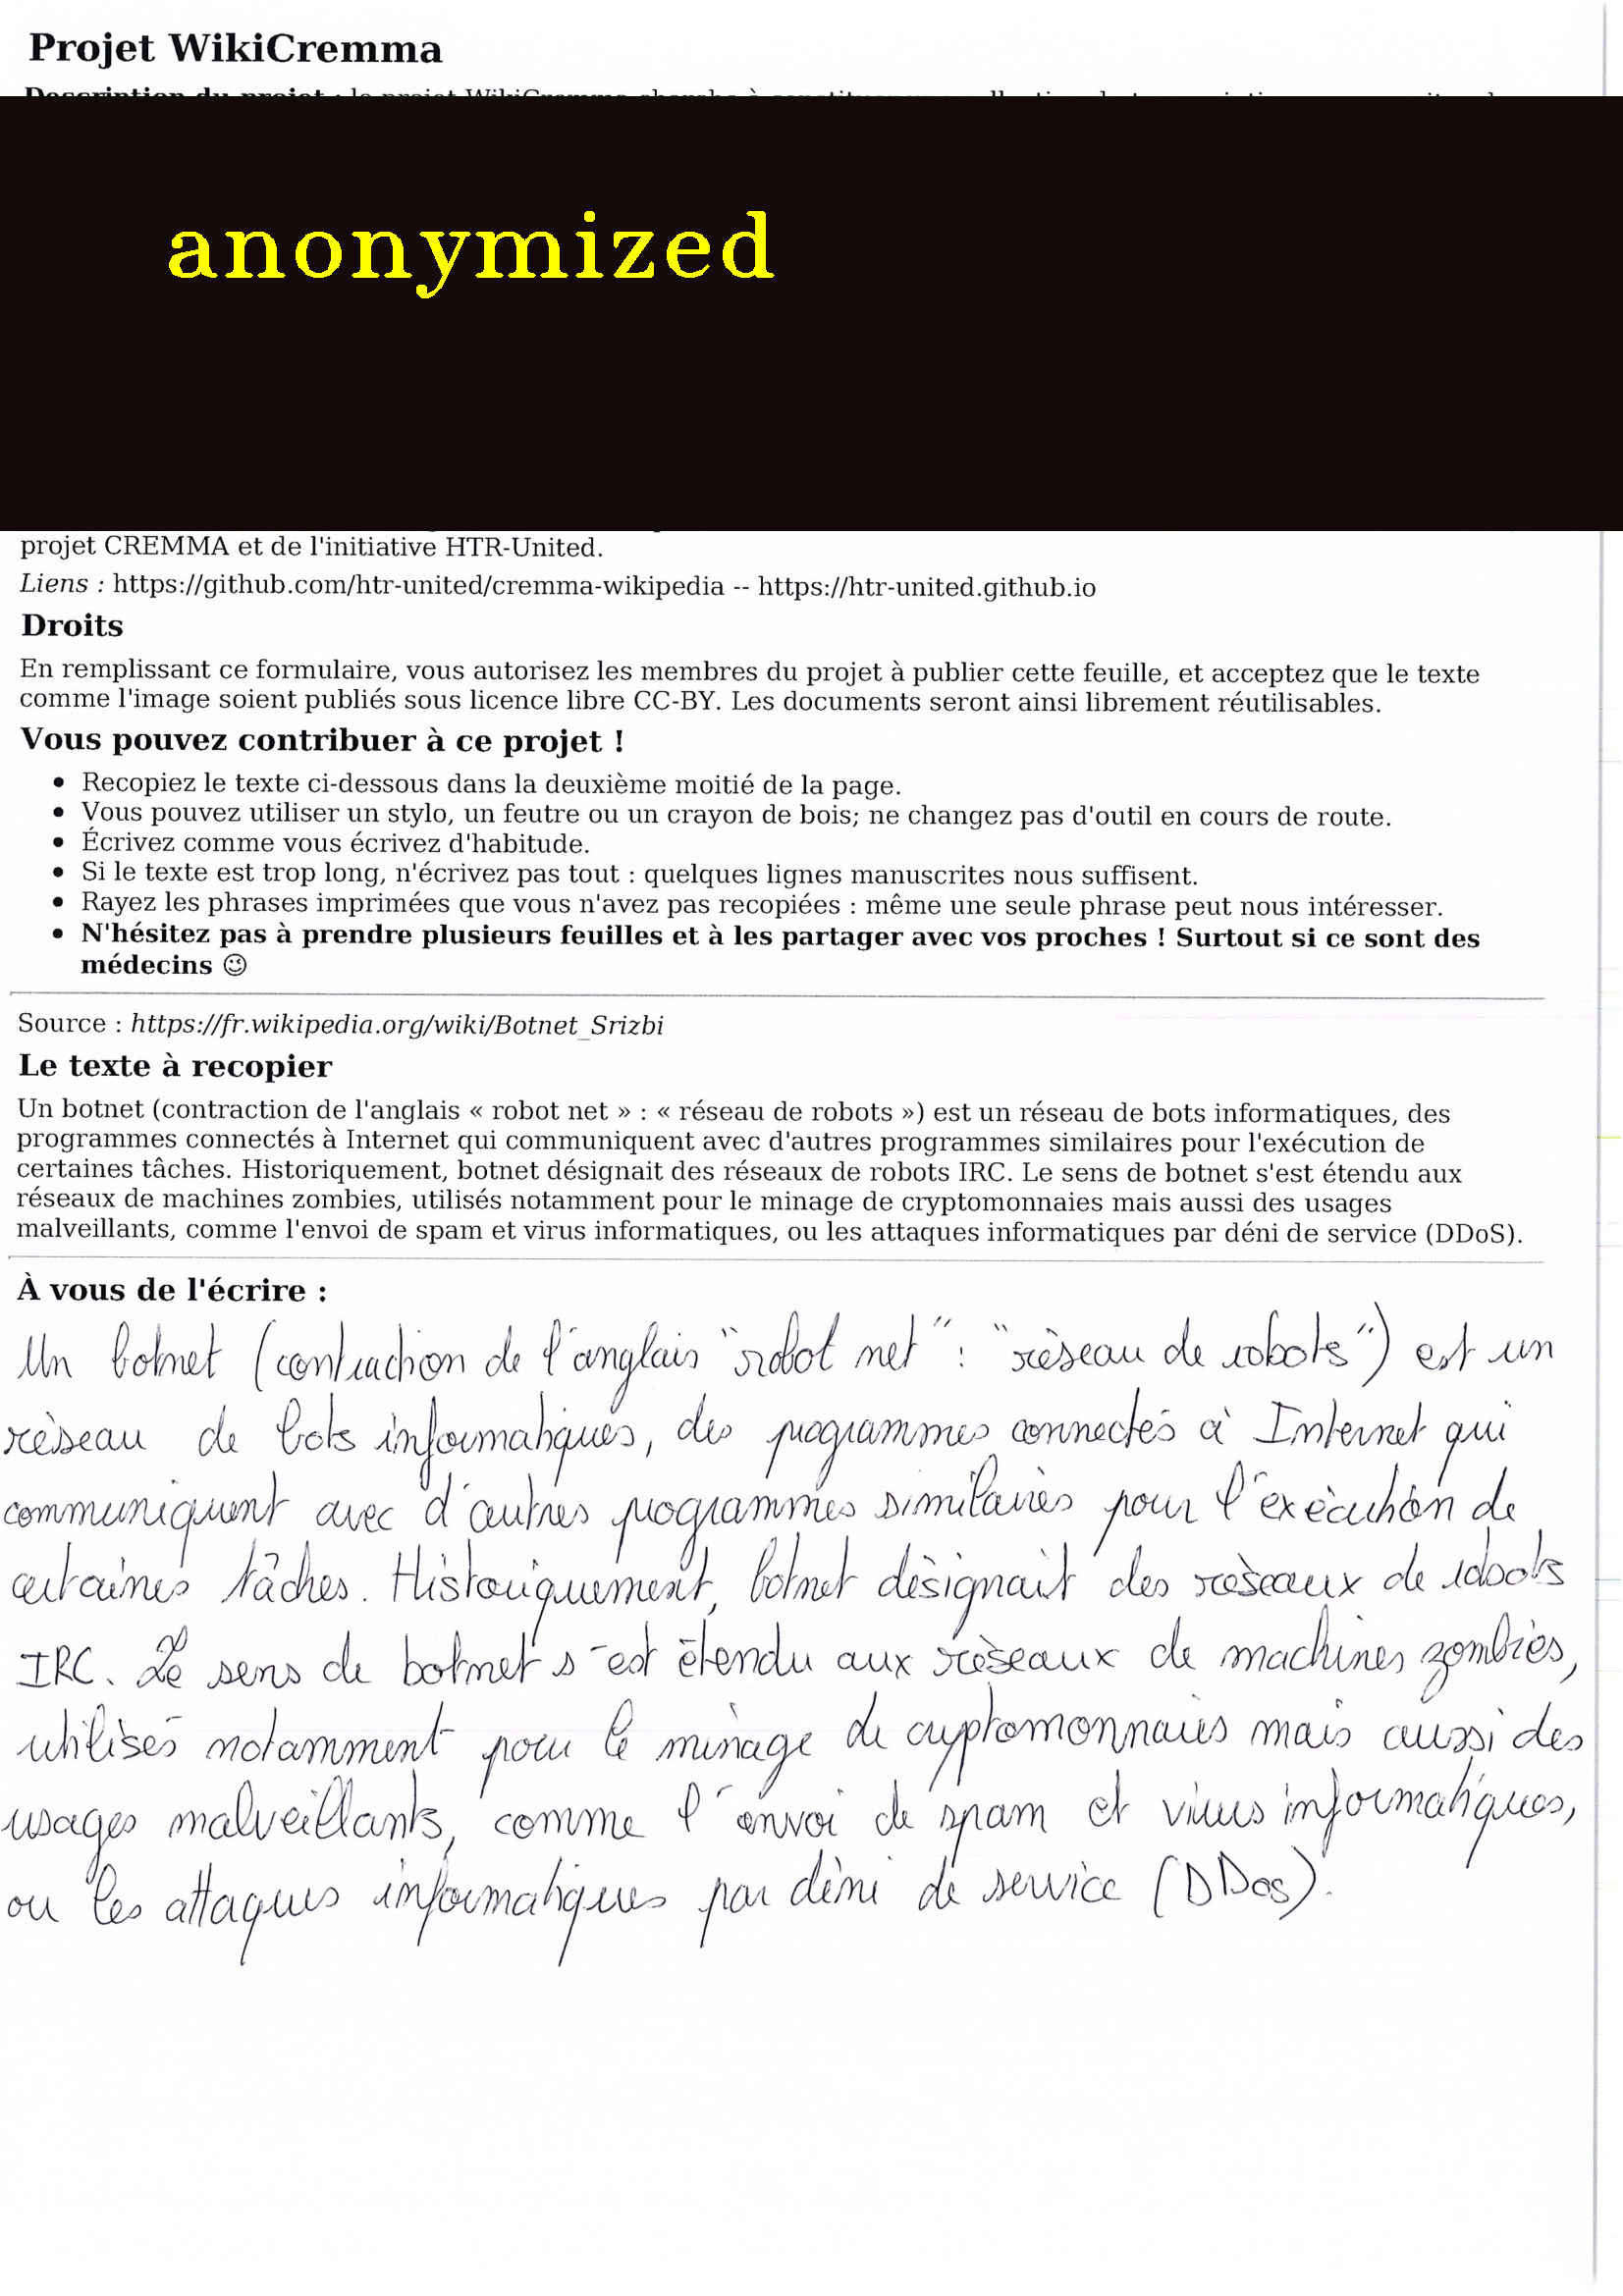 Projet WikiCremma
anonymized
projet CREMMA et de l'initiative HTR-United.
Liens : https://github.com/htr-united/cremma-wikipedia -- https://htr-united.github.io
Droits
En remplissant ce formulaire, vous autorisez les membres du projet à publier cette feuille, et acceptez que le texte
comme l'image soient publiés sous licence libre CC-BY. Les documents seront ainsi librement réutilisables.
Vous pouvez contribuer à ce projet !
• Recopiez le texte ci-dessous dans la deuxième moitié de la page.
• Vous pouvez utiliser un stylo, un feutre ou un crayon de bois; ne changez pas d'outil en cours de route.
• Écrivez comme vous écrivez d'habitude.
• Si le texte est trop long, n'écrivez pas tout : quelques lignes manuscrites nous suffisent.
• Rayez les phrases imprimées que vous n'avez pas recopiées : même une seule phrase peut nous intéresser.
• N'hésitez pas à prendre plusieurs feuilles et à les partager avec vos proches ! Surtout si ce sont des
médecins 😉
Source : https://fr.wikipedia.org/wiki/Botnet_Srizbi
Le texte à recopier
Un botnet (contraction de l'anglais « robot net » : « réseau de robots ») est un réseau de bots informatiques, des
programmes connectés à Internet qui communiquent avec d'autres programmes similaires pour l'exécution de
certaines tâches. Historiquement, botnet désignait des réseaux de robots IRC. Le sens de botnet s'est étendu aux
réseaux de machines zombies, utilisés notamment pour le minage de cryptomonnaies mais aussi des usages
malveillants, comme l'envoi de spam et virus informatiques, ou les attaques informatiques par déni de service (DDoS).
À vous de l'écrire :
Un botnet (contraction de l'anglais "robot net" : "réseau de robots") est un
réseau de bots informatiques, des programmes connectés à Internet qui
communiquent avec d'autres programmes similaires pour l'exécution de
certaines tâches. Historiquement, botnet désignait des réseaux de robots
IRC. Le sens de botnet s'est étendu aux réseaux de machines zombies,
utilisés notamment pour le minage de cryptomonnaies mais aussi des
usages malveillants, comme l'envoi de spam et virus informatiques,
ou les attaques informatiques par déni de service (DDos).